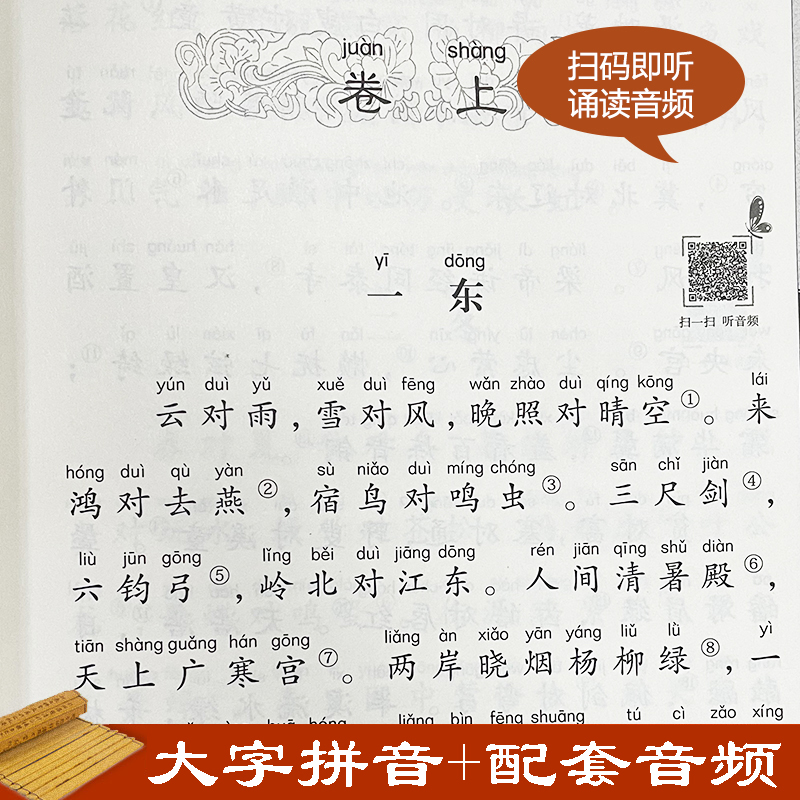 juàn shàng
卷 上
扫码即听
诵读音频
yī dōng
一 东
扫一扫 听音频
yún duì yǔ xuě duì fēng wǎn zhào duì qíng kōng lái
云对雨，雪对风，晚照对晴空①。来
hóng duì qù yàn sù niǎo duì míng chóng sān chǐ jiàn
鸿对去燕②，宿鸟对鸣虫③。三尺剑④，
liù jūn gōng lǐng běi duì jiāng dōng rén jiān qīng shǔ diàn
六钧弓⑤，岭北对江东。人间清暑殿⑥，
tiān shàng guǎng hán gōng liǎng àn xiǎo yān yáng liǔ lǜ yì
天上广寒宫⑦。两岸晓烟杨柳绿⑧，一
liǎng bìn fēng shuāng tú cì zǎo xíng
大字拼音+配套音频